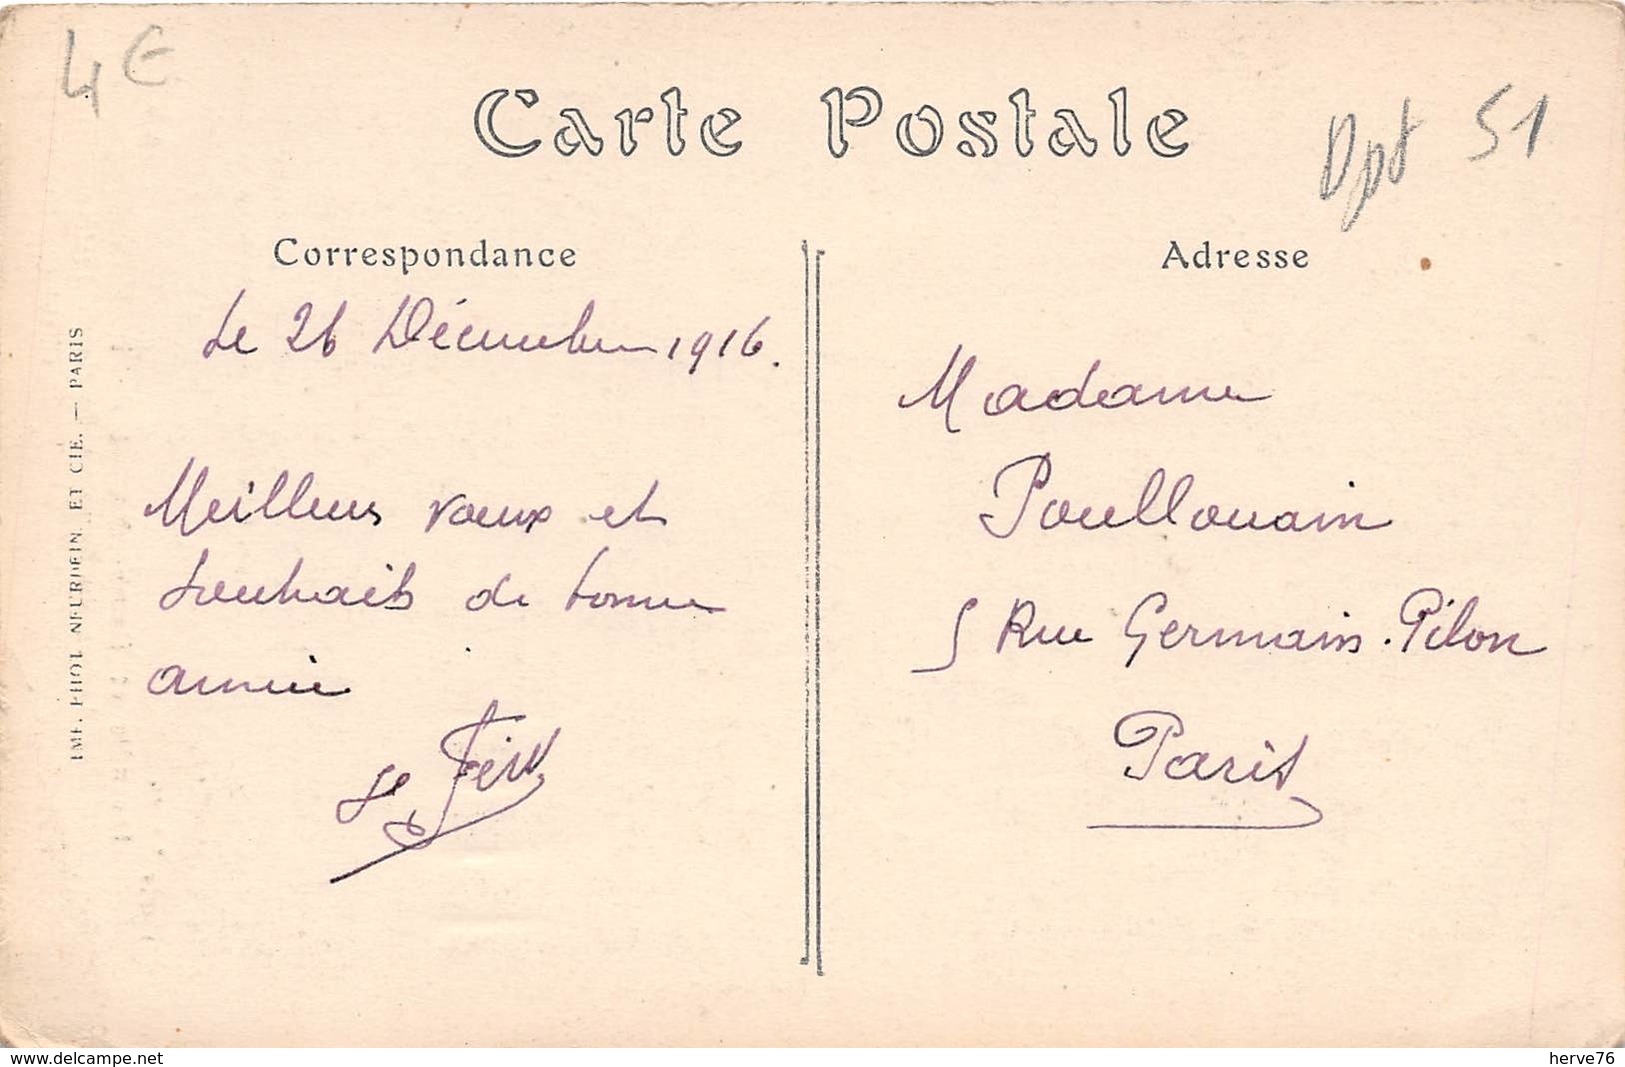 4 €
Carte Postale
Dpt 51
Correspondance
Le 26 Décembre 1916.
Meilleurs vœux et
souhaits de bonne
année
Adresse
Madame
Poullouain
5 Rue Germain-Pilon
Paris
IMP. PHOT. NEURDEIN ET CIE. — PARIS
www.delcampe.net
herve76